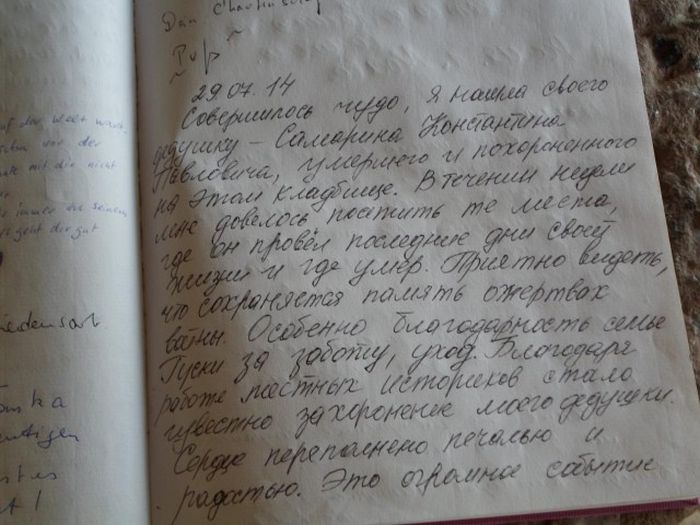 Dan
29.07.14
Совершилось чудо, я нашла своего
дедушку – Самарина Константина
Павловича, умершего и похороненного
на этом кладбище. В течении недели
мне довелось посетить те места,
где он провёл последние дни своей
жизни и где умер. Приятно видеть,
что сохраняется память о жертвах
войны. Особенно благодарность семье
Гуски за заботу, уход. Благодаря
работе местных историков стало
известно захоронение моего дедушки.
Сердце переполнено печалью и
радостью. Это огромное событие
auf der Welt
der
mit dir nicht
immer
geht dir gut